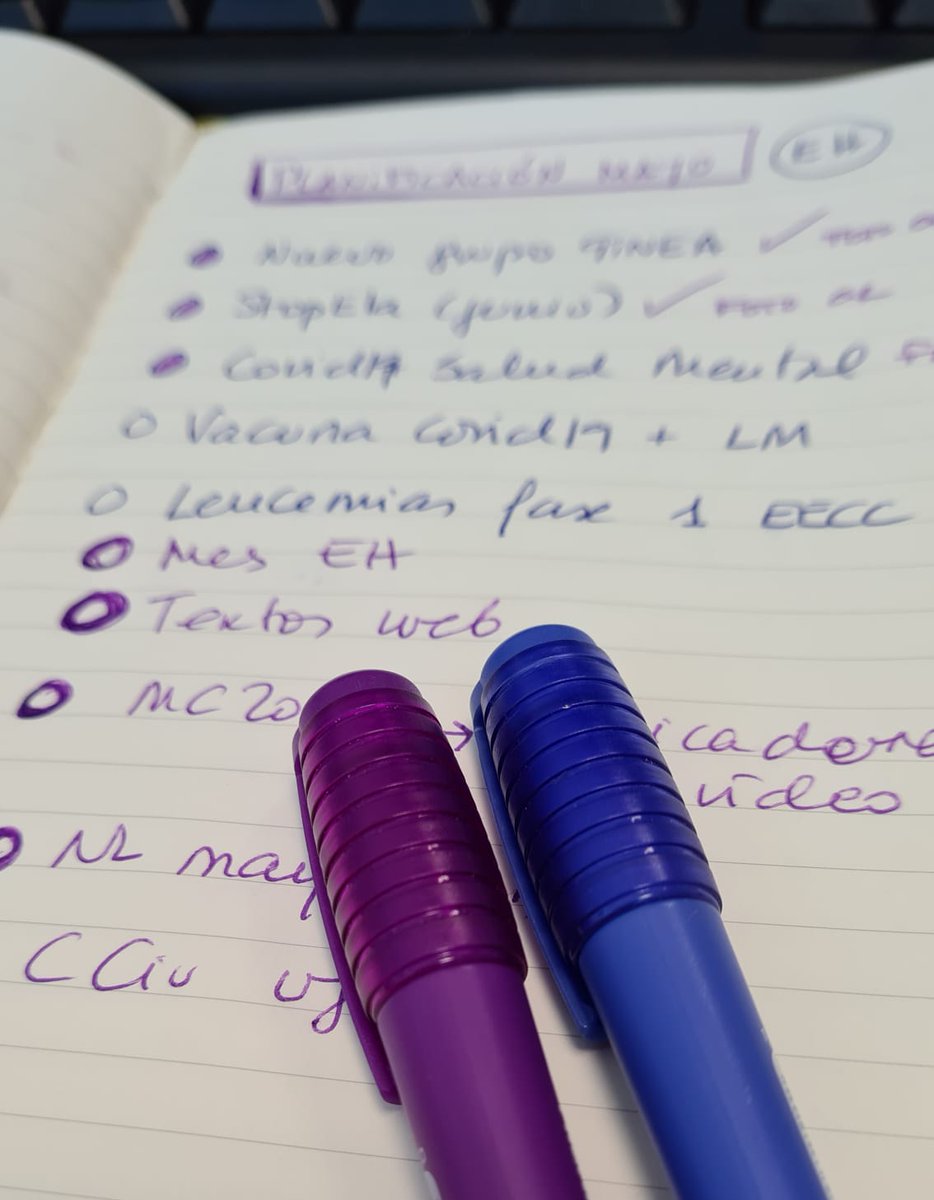 Planificación mayo EH
Nuevo grupo TiNEA ✓
StopEla (junio) ✓
Covid19 Salud Mental
Vacuna Covid19 + LM
Leucemias fase 1 EECC
Mes EH
Textos web
MC20 → icadore
video
NL may